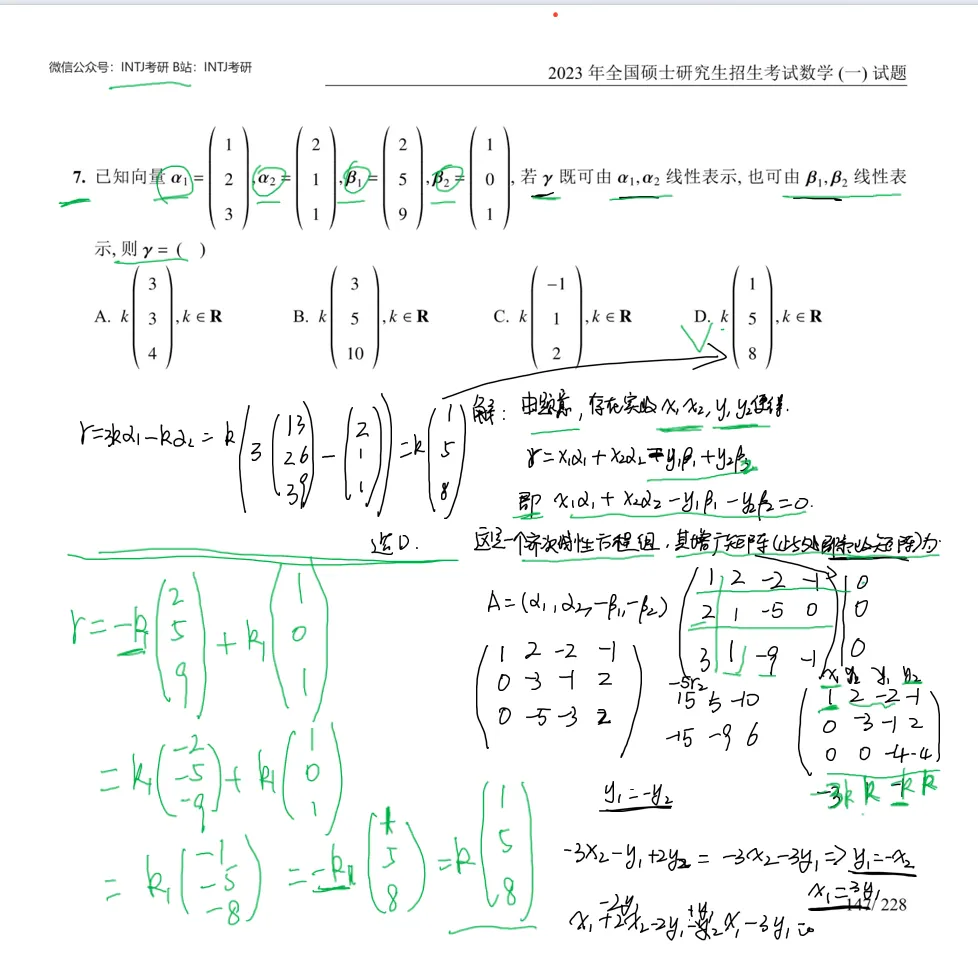 微信公众号：INTJ考研 B站：INTJ考研
2023 年全国硕士研究生招生考试数学 (一) 试题
7. 已知向量 α₁ = (1 2 3), α₂ = (2 1 1), β₁ = (2 5 9), β₂ = (1 0 1), 若 γ 既可由 α₁,α₂ 线性表示, 也可由 β₁,β₂ 线性表
示, 则 γ = ( )
A. k (3 3 4), k ∈ R B. k (3 5 10), k ∈ R C. k (−1 1 2), k ∈ R D. k (1 5 8), k ∈ R
γ=3kα₁−kα₂= k(3(13 26 39)−(2 1 1))=k(1 5 8)
选D.
解: 由题意, 存在实数 x₁x₂, y₁ y₂使得.
γ=x₁α₁+x₂α₂=y₁β₁+y₂β₂
即 x₁α₁+x₂α₂−y₁β₁−y₂β₂=0.
这是一个齐次线性方程组, 其增广矩阵(此处即系数矩阵)为
A=(α₁,α₂,−β₁,−β₂)
1 2 −2 −1 0
2 1 −5 0 0
3 1 −9 −1 0
1 2 −2 −1
0 −3 −1 2
0 −5 −3 2
−5r₂
15 5 −10
−15 −9 6
y₁ y₂
1 2 −2 −1
0 −3 −1 2
0 0 −4 −4
−3k k −k k
y₁=−y₂
−3x₂−y₁+2y₂ = −3x₂−3y₁ ⇒ y₁=−x₂
x₁=3y₁
−2y₁ +y₁
x₁+2x₂−2y₁−y₂ x₁−3y₁=0
γ=−k₁(2 5 9)+k₁(1 0 1)
=k₁(−2 −5 −9)+k₁(1 0 1)
=k₁(−1 −5 −8)=−k₁(1 5 8)=k(1 5 8)
147/ 228